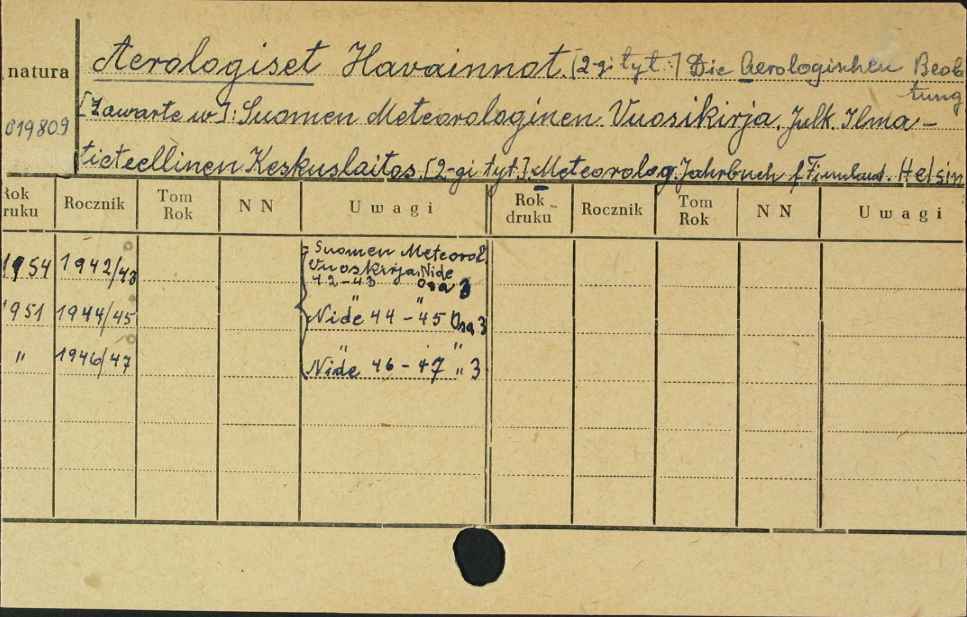 natura Aerologiset Havainnot [2-gi tyt.:] Die Aerologischen Beob
tung
019809 [Zawarte w]: Suomen Meteorologinen Vuosikirja. Julk. Ilma-
tieteellinen Keskuslaitos. [2-gi tyt.] Meteorolog. Jahrbuch f. Finnland. Helsin
Rok druku Rocznik Tom Rok NN Uwagi Rok druku Rocznik Tom Rok NN Uwagi
Suomen Meteorol.
1954 1942/43 Vuoskirja, Nide
42-43 Osa 3
" "
1951 1944/45 Nide 44-45 Osa 3
" "
" 1946/47 Nide 46-47 " 3